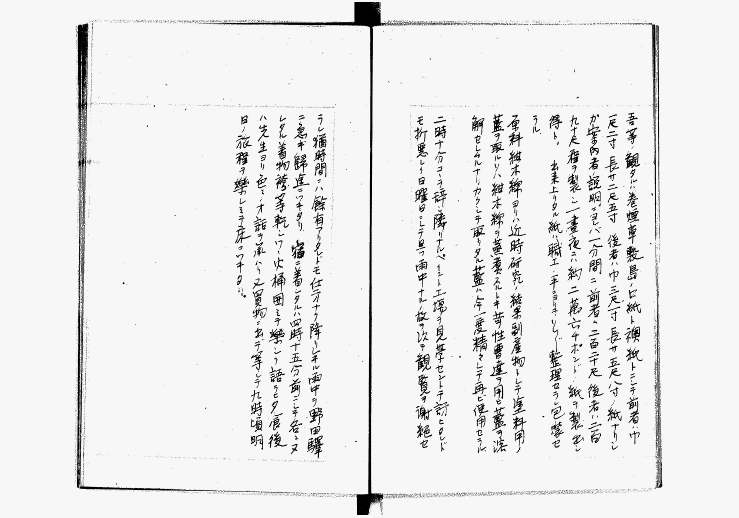 吾等ノ觀タルハ巻煙草敷島ノ口紙ト襖紙トニシテ前者ハ巾
一尺二寸長サ二尺五寸後者ハ巾三尺一寸長サ五尺八寸ノ紙ナリシ
ガ案内者ノ説明ニヨレバ一分間ニ前者ハ二百二十尺後者ハ二百
九十尺程ヲ製シ一晝夜ニハ約二萬六千ポンドノ紙ヲ製出シ
得ト。出来上リタル紙ハ職工ノ手ニヨリ整理セラレ包装セ
ラル
原料紺木綿ヨリハ近時研究ノ結果副産物トシテ塗料用ノ
藍ヲ取ル
紺木綿ヲ蒸煮スルトキ苛性曹達ヲ用ヒ藍ヲ溶
解セシムルナリカクシテ取リタル藍ハ今一度精製シテ再ビ使用セラル
二時十分ココヲ辞シ隣リナルペイント工場ヲ見学セントテ訪ヒタレド
モ折悪シク日曜日ニシテ且ツ雨中ナルノ故ヲ以テ觀覧ヲ謝絶セ
ラレ猶時間ニハ餘有リタレドモ仕方ナク降リシキル雨中ヲ野田驛
ニ急ギ歸途ニツキタリ 宿ニ着シタルハ四時十五分前ニシテ各ニヌ
レタル着物袴等乾シツツ火桶囲ミテ樂シク語ラヒ夕食後
ハ先生ヨリ色々ノオ話ヲ承ハリ又買物ニ出デ等シテ九時頃明
日ノ旅程ヲ樂シミテ床ニツキタリ。